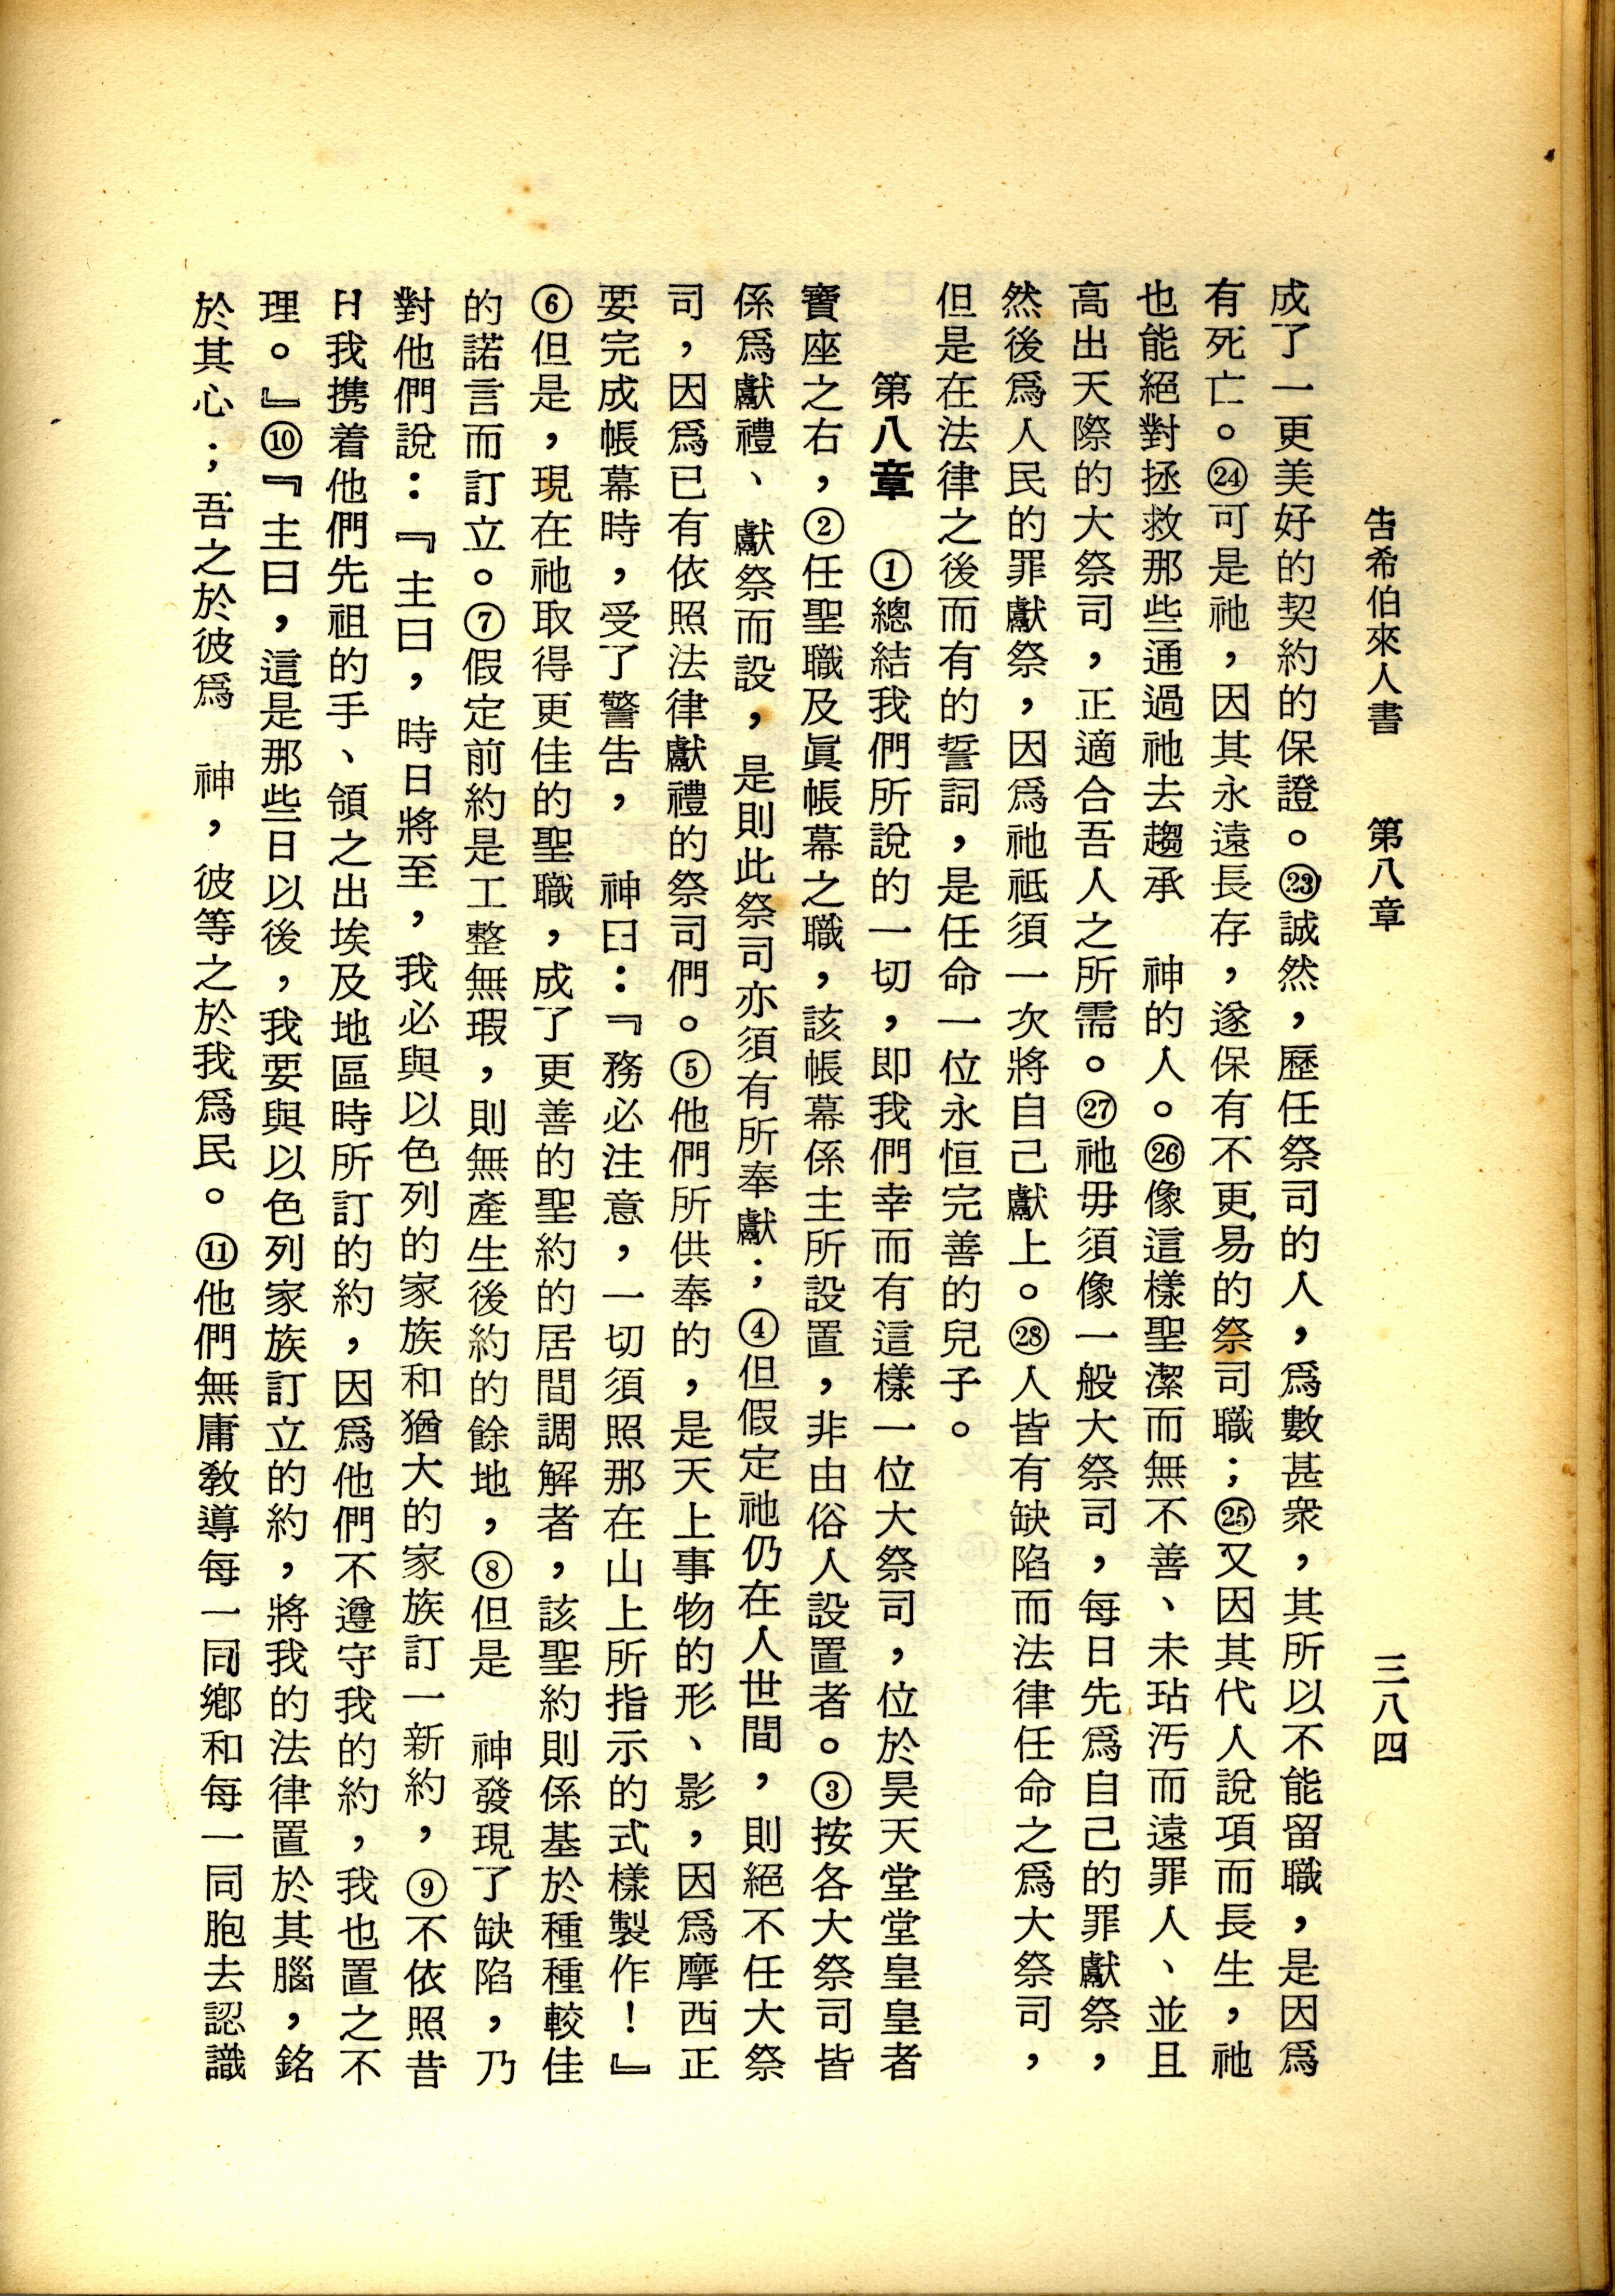 告希伯來人書　第八章　三八四
成了一更美好的契約的保證。㉓誠然，歷任祭司的人，爲數甚衆，其所以不能留職，是因爲
有死亡。㉔可是祂，因其永遠長存，遂保有不更易的祭司職；㉕又因其代人說項而長生，祂
也能絕對拯救那些通過祂去趨承　神的人。㉖像這樣聖潔而無不善、未玷汚而遠罪人、並且
高出天際的大祭司，正適合吾人之所需。㉗祂毋須像一般大祭司，每日先爲自己的罪獻祭，
然後爲人民的罪獻祭，因爲祂祗須一次將自己獻上。㉘人皆有缺陷而法律任命之爲大祭司，
但是在法律之後而有的誓詞，是任命一位永恒完善的兒子。
第八章　①總結我們所說的一切，即我們幸而有這樣一位大祭司，位於昊天堂堂皇皇者
寶座之右，②任聖職及眞帳幕之職，該帳幕係主所設置，非由俗人設置者。③按各大祭司皆
係爲獻禮、獻祭而設，是則此祭司亦須有所奉獻；④但假定祂仍在人世間，則絕不任大祭
司，因爲已有依照法律獻禮的祭司們。⑤他們所供奉的，是天上事物的形、影，因爲摩西正
要完成帳幕時，受了警告，　神曰：『務必注意，一切須照那在山上所指示的式樣製作！』
⑥但是，現在祂取得更佳的聖職，成了更善的聖約的居間調解者，該聖約則係基於種種較佳
的諾言而訂立。⑦假定前約是工整無瑕，則無產生後約的餘地，⑧但是　神發現了缺陷，乃
對他們說：『主曰，時日將至，我必與以色列的家族和猶大的家族訂一新約，⑨不依照昔
日我携着他們先祖的手、領之出埃及地區時所訂的約，因爲他們不遵守我的約，我也置之不
理。』⑩『主曰，這是那些日以後，我要與以色列家族訂立的約，將我的法律置於其腦，銘
於其心；吾之於彼爲　神，彼等之於我爲民。⑪他們無庸敎導每一同鄉和每一同胞去認識